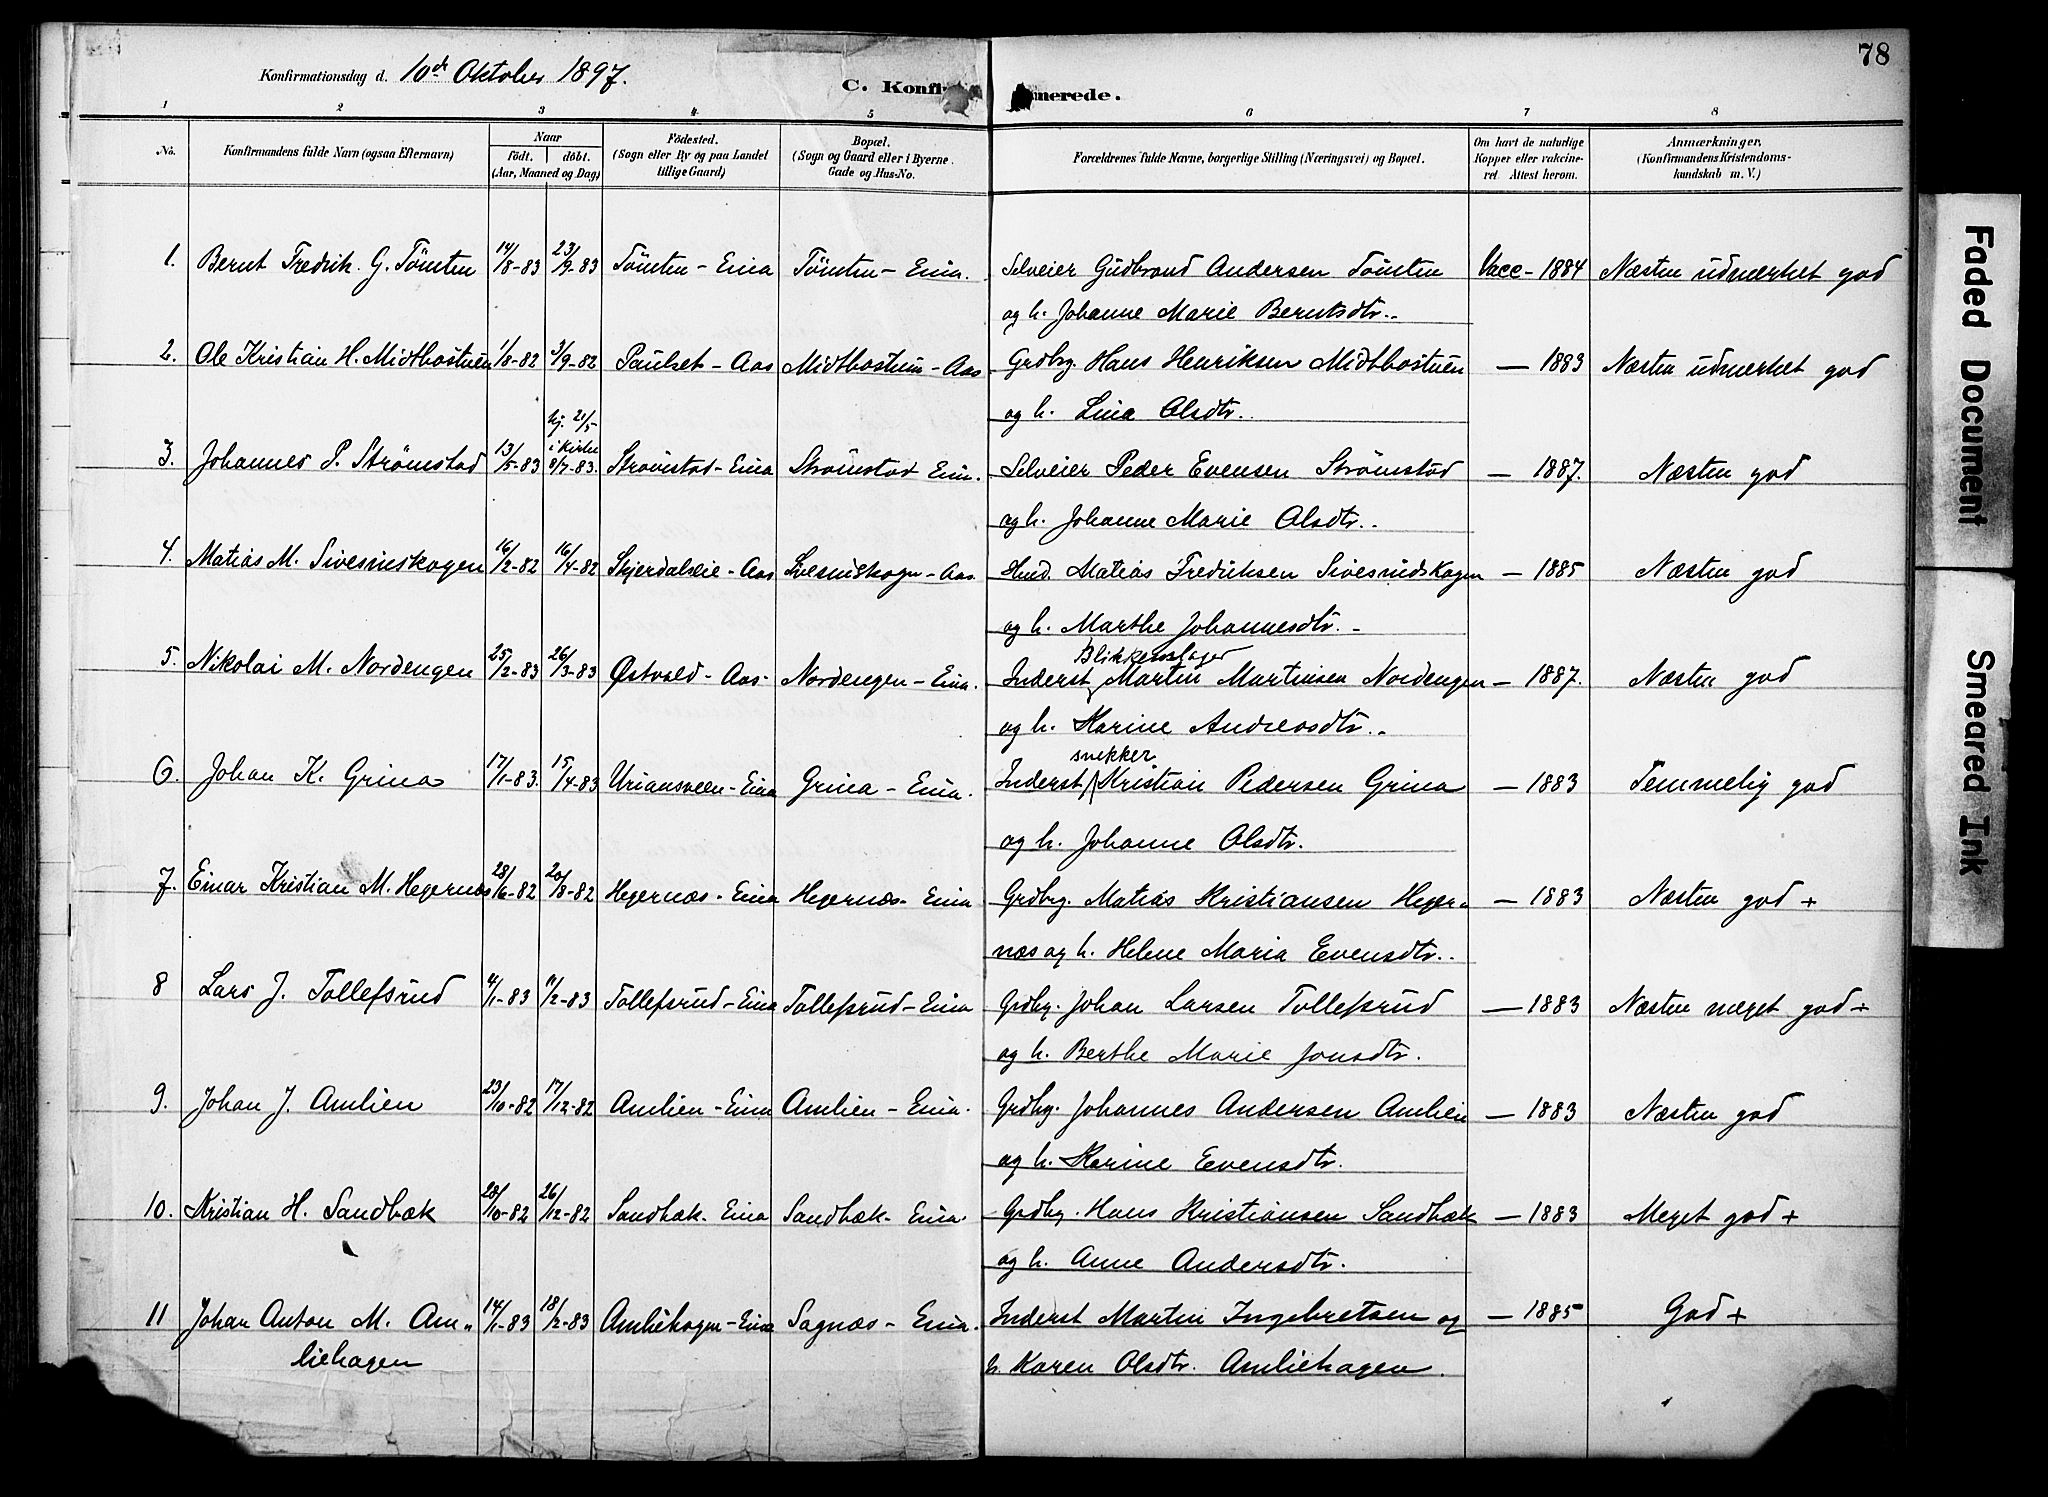 78
Konfirmationsdag d. 10de Oktober 1897.
C. Konfirmerede.
1 2 3 4 5 6 7 8
No. Konfirmandens fulde Navn (ogsaa Efternavn) Naar født. døbt. (Aar, Maaned og Dag) Fødested. (Sogn eller By og paa Landet tillige Gaard) Bopæl. (Sogn og Gaard eller i Byerne Gade og Hus-No. Forældrenes fulde Navne, borgerlige Stilling (Næringsvei) og Bopæl. Om havt de naturlige Kopper eller vakcineret. Attest herom. Anmærkninger. (Konfirmandens Kristendomskundskab m. V.)
1. Bernt Fredrik G. Tömten 14/8-83 23/9-83 Tömten - Eina Tömten - Eina. Selveier Gudbrand Andersen Tömten Vacc - 1884 Næsten udmærket god
og h. Johanne Marie Berntsdtr..
2. Ole Kristian H. Midtbøstuen 1/8-82 3/9-82 Paulset - Aas Midtbøstuen - Aas Grdbrg. Hans Henriksen Midtbøstuen — 1883 Næsten udmærket god
og h. Lina Olsdtr..
3. Johannes P. Strömstad 13/5-83 hj. 21/5 i kirke 8/7-83. Strömstad - Eina Strömstad Eina. Selveier Peder Evensen Strömstad — 1887. Næsten god
og h. Johanne Marie Olsdtr..
4. Matias M. Sivesindskogen 16/2-82 16/4-82 Skjerdalseie - Aas Sivesindskogen - Aas. Husd. Matias Fredriksen Sivesindskogen — 1885 Næsten god
og h. Marthe Johannesdtr. -
5. Nikolai M. Nordengen 25/2-83 26/3-83 Østvold - Aas - Nordengen - Eina. Inderst, Blikkenslager Martin Martinsen Nordengen — 1887. Næsten god
og h. Karine Andreasdtr..
6. Johan K. Grina 17/1-83. 15/4-83 Uriansveen - Eina Grina - Eina. Inderst snekker Kristian Pedersen Grina — 1883 Temmelig god
og h. Johanne Olsdtr.
7. Einar Kristian M. Hegernæs 28/6-82 20/8-82 Hegernæs - Eina Hegernæs - Eina Grdbrg. Matias Kristiansen Heger- — 1883 Næsten god +
næs og h. Helene Maria Evensdtr..
8 Lars J. Tollefsrud 4/1-83 11/2-83 Tollefsrud - Eina Tollefsrud - Eina Grdbrg. Johan Larsen Tollefsrud — 1883 Næsten meget god +
og h. Berthe Marie Jonsdtr.
9. Johan J. Amlien 23/10-82 17/12-82 Amlien - Eina Amlien - Eina. Grdbrg. Johannes Andersen Amlien — 1883 Næsten god
og h. Karine Evensdtr.
10. Kristian H. Sandbæk 28/10-82 26/12-82 Sandbæk - Eina Sandbæk - Eina. Grdbrg. Hans Kristiansen Sandbæk — 1883 Meget god +
og h. Anne Andersdtr.
11 Johan Anton M. Am- 14/1-83 18/2-83 Amliehagen - Eina Sagnæs - Eina. Inderst Martin Ingebretsen og — 1885 God +
liehagen h. Karen Olsdtr. Amliehagen.
Faded Document
Smeared Ink